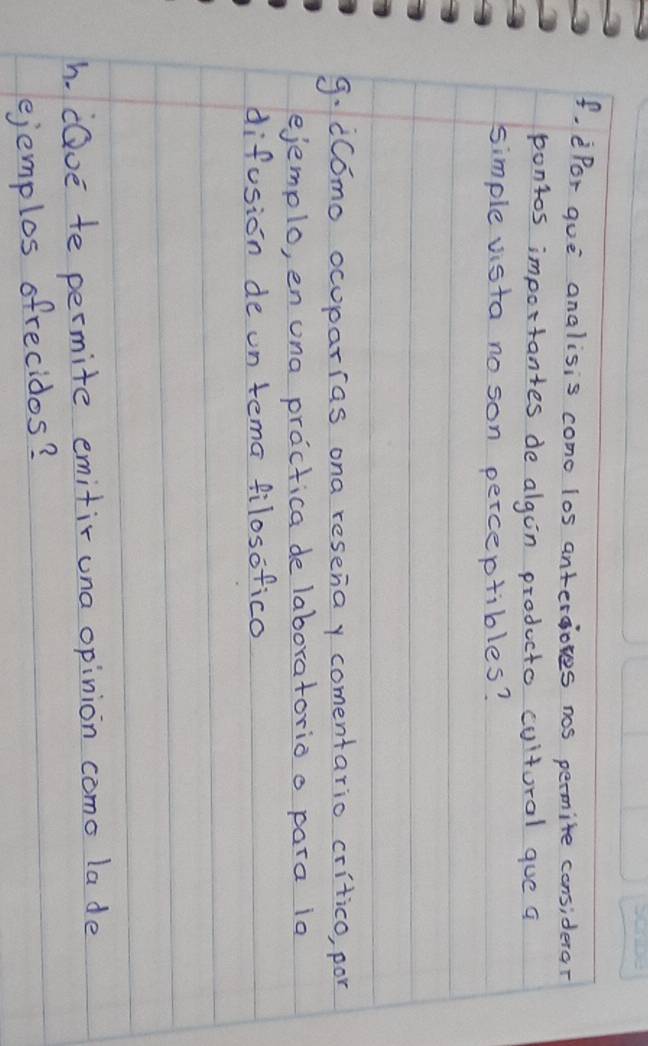 f. ¿Por qué analisis como los anteriores nos permite considerar
pontos importantes de algún producto cultural que a
simple vista no son perceptibles?
g. ¿Cómo ocuparías una reseña y comentario crítico, por
ejemplo, en una práctica de laboratorio o para la
difusión de un tema filosófico
h. ¿Qué te permite emitir una opinión como la de
ejemplos ofrecidos?